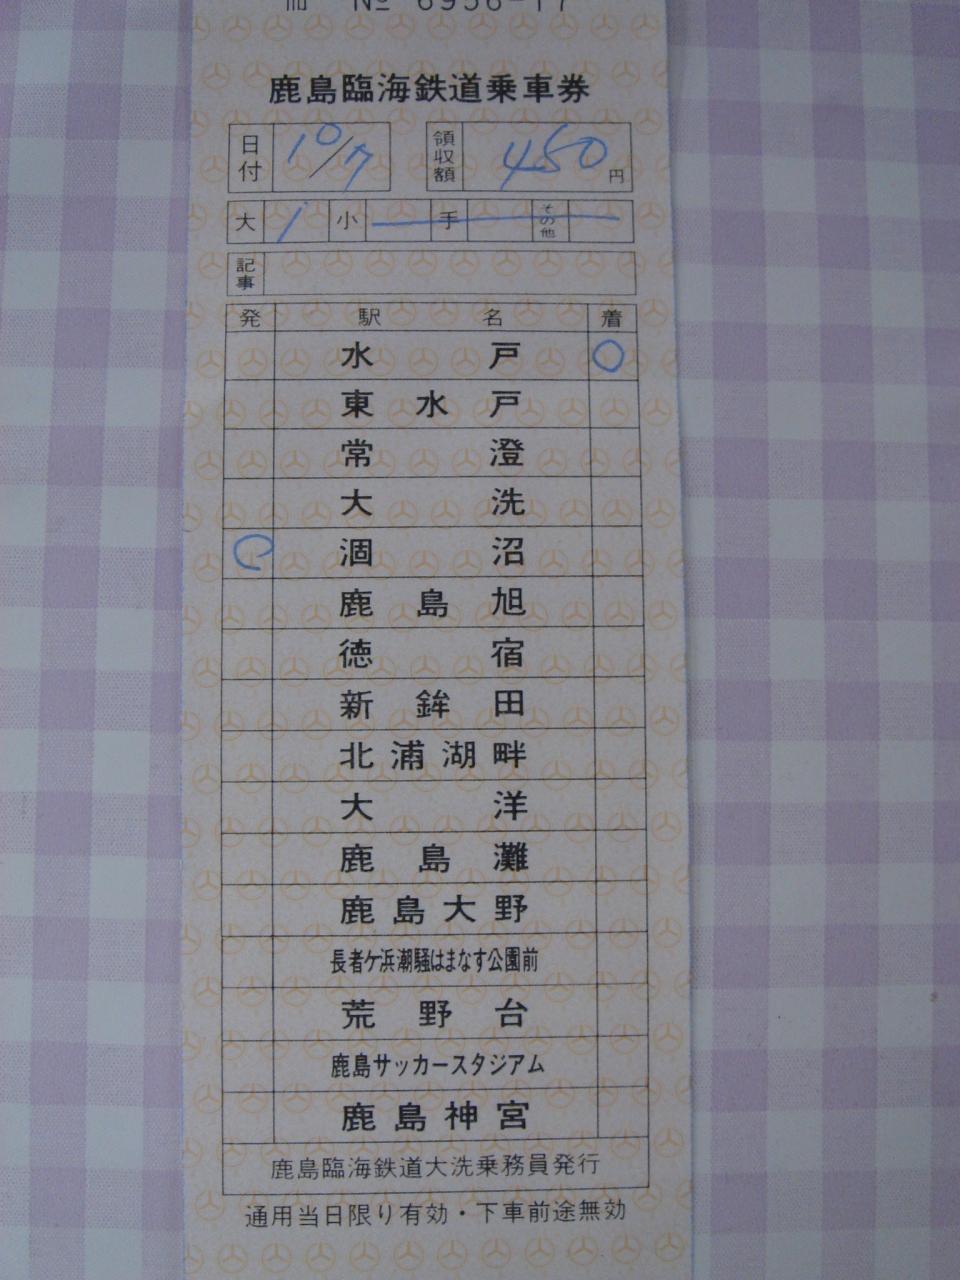 冊 № 6956-17
鹿島臨海鉄道乗車券
日付 10/7 領収額 450 円
大 1 小 手 その他
記事
発 駅名 着
水戸 ○
東水戸
常澄
大洗
○ 涸沼
鹿島旭
徳宿
新鉾田
北浦湖畔
大洋
鹿島灘
鹿島大野
長者ケ浜潮騒はまなす公園前
荒野台
鹿島サッカースタジアム
鹿島神宮
鹿島臨海鉄道大洗乗務員発行
通用当日限り有効・下車前途無効